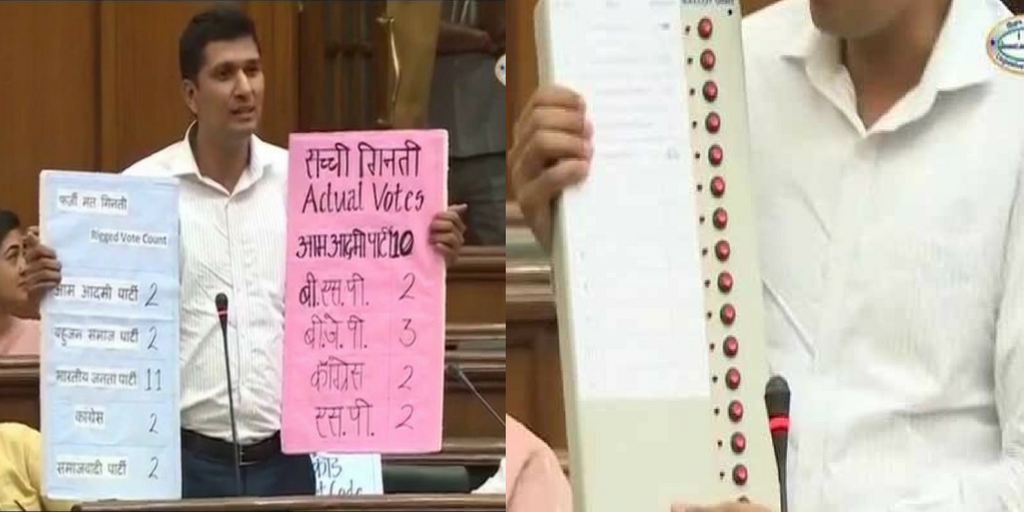 फर्जी मत गिनती
Rigged Vote Count
आम आदमी पार्टी 2
बहुजन समाज पार्टी 2
भारतीय जनता पार्टी 11
कांग्रेस 2
समाजवादी पार्टी 2
सच्ची गिनती
Actual Votes
आम आदमी पार्टी 10
बी.एस.पी. 2
बी.जे.पी. 3
काँग्रेस 2
एस.पी. 2
कोड
t Code